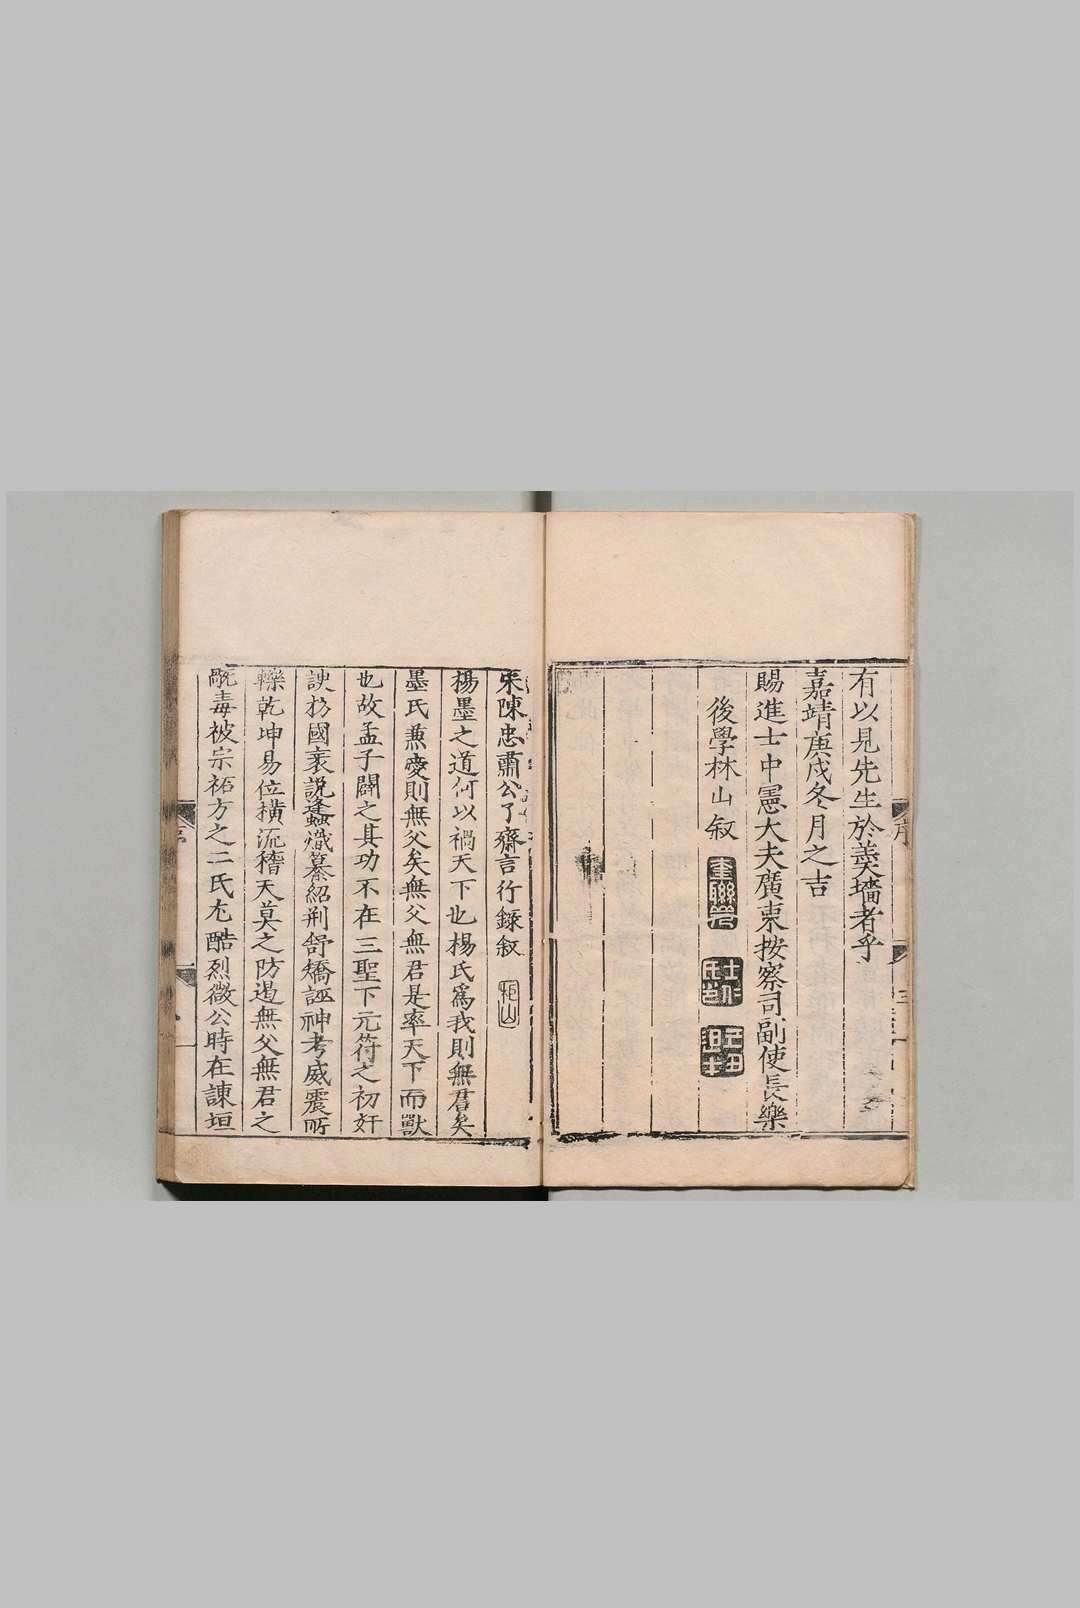 有以見先生於羹墻者乎
嘉靖庚戌冬月之吉
賜進士中憲大夫廣東按察司副使長樂
後學林山叙
序
三
宋陳忠肅公了齋言行錄叙
楊墨之道何以禍天下也楊氏爲我則無君矣
墨氏兼愛則無父矣無父無君是率天下而獸
也故孟子闢之其功不在三聖下元符之初奸
諛扐國衮説蠭熾纂紹荆舒矯誣神考威震所
轢乾坤易位橫流稽天莫之防遏無父無君之
旣毒被宗祏方之二氏尤酷烈㣲公時在諌垣
序
一